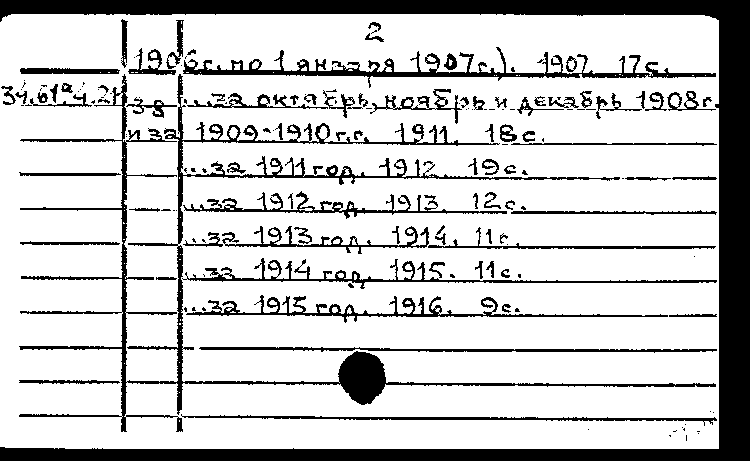 2
1906г. по 1 января 1907г.). 1907. 17с.
34.61а.4.21 ...за октябрь, ноябрь и декабрь 1908г.
38
и за 1909-1910г.г. 1911. 18с.
...за 1911 год. 1912. 19с.
...за 1912 год. 1913. 12с.
...за 1913 год. 1914. 11с.
...за 1914 год. 1915. 11с.
...за 1915 год. 1916. 9с.